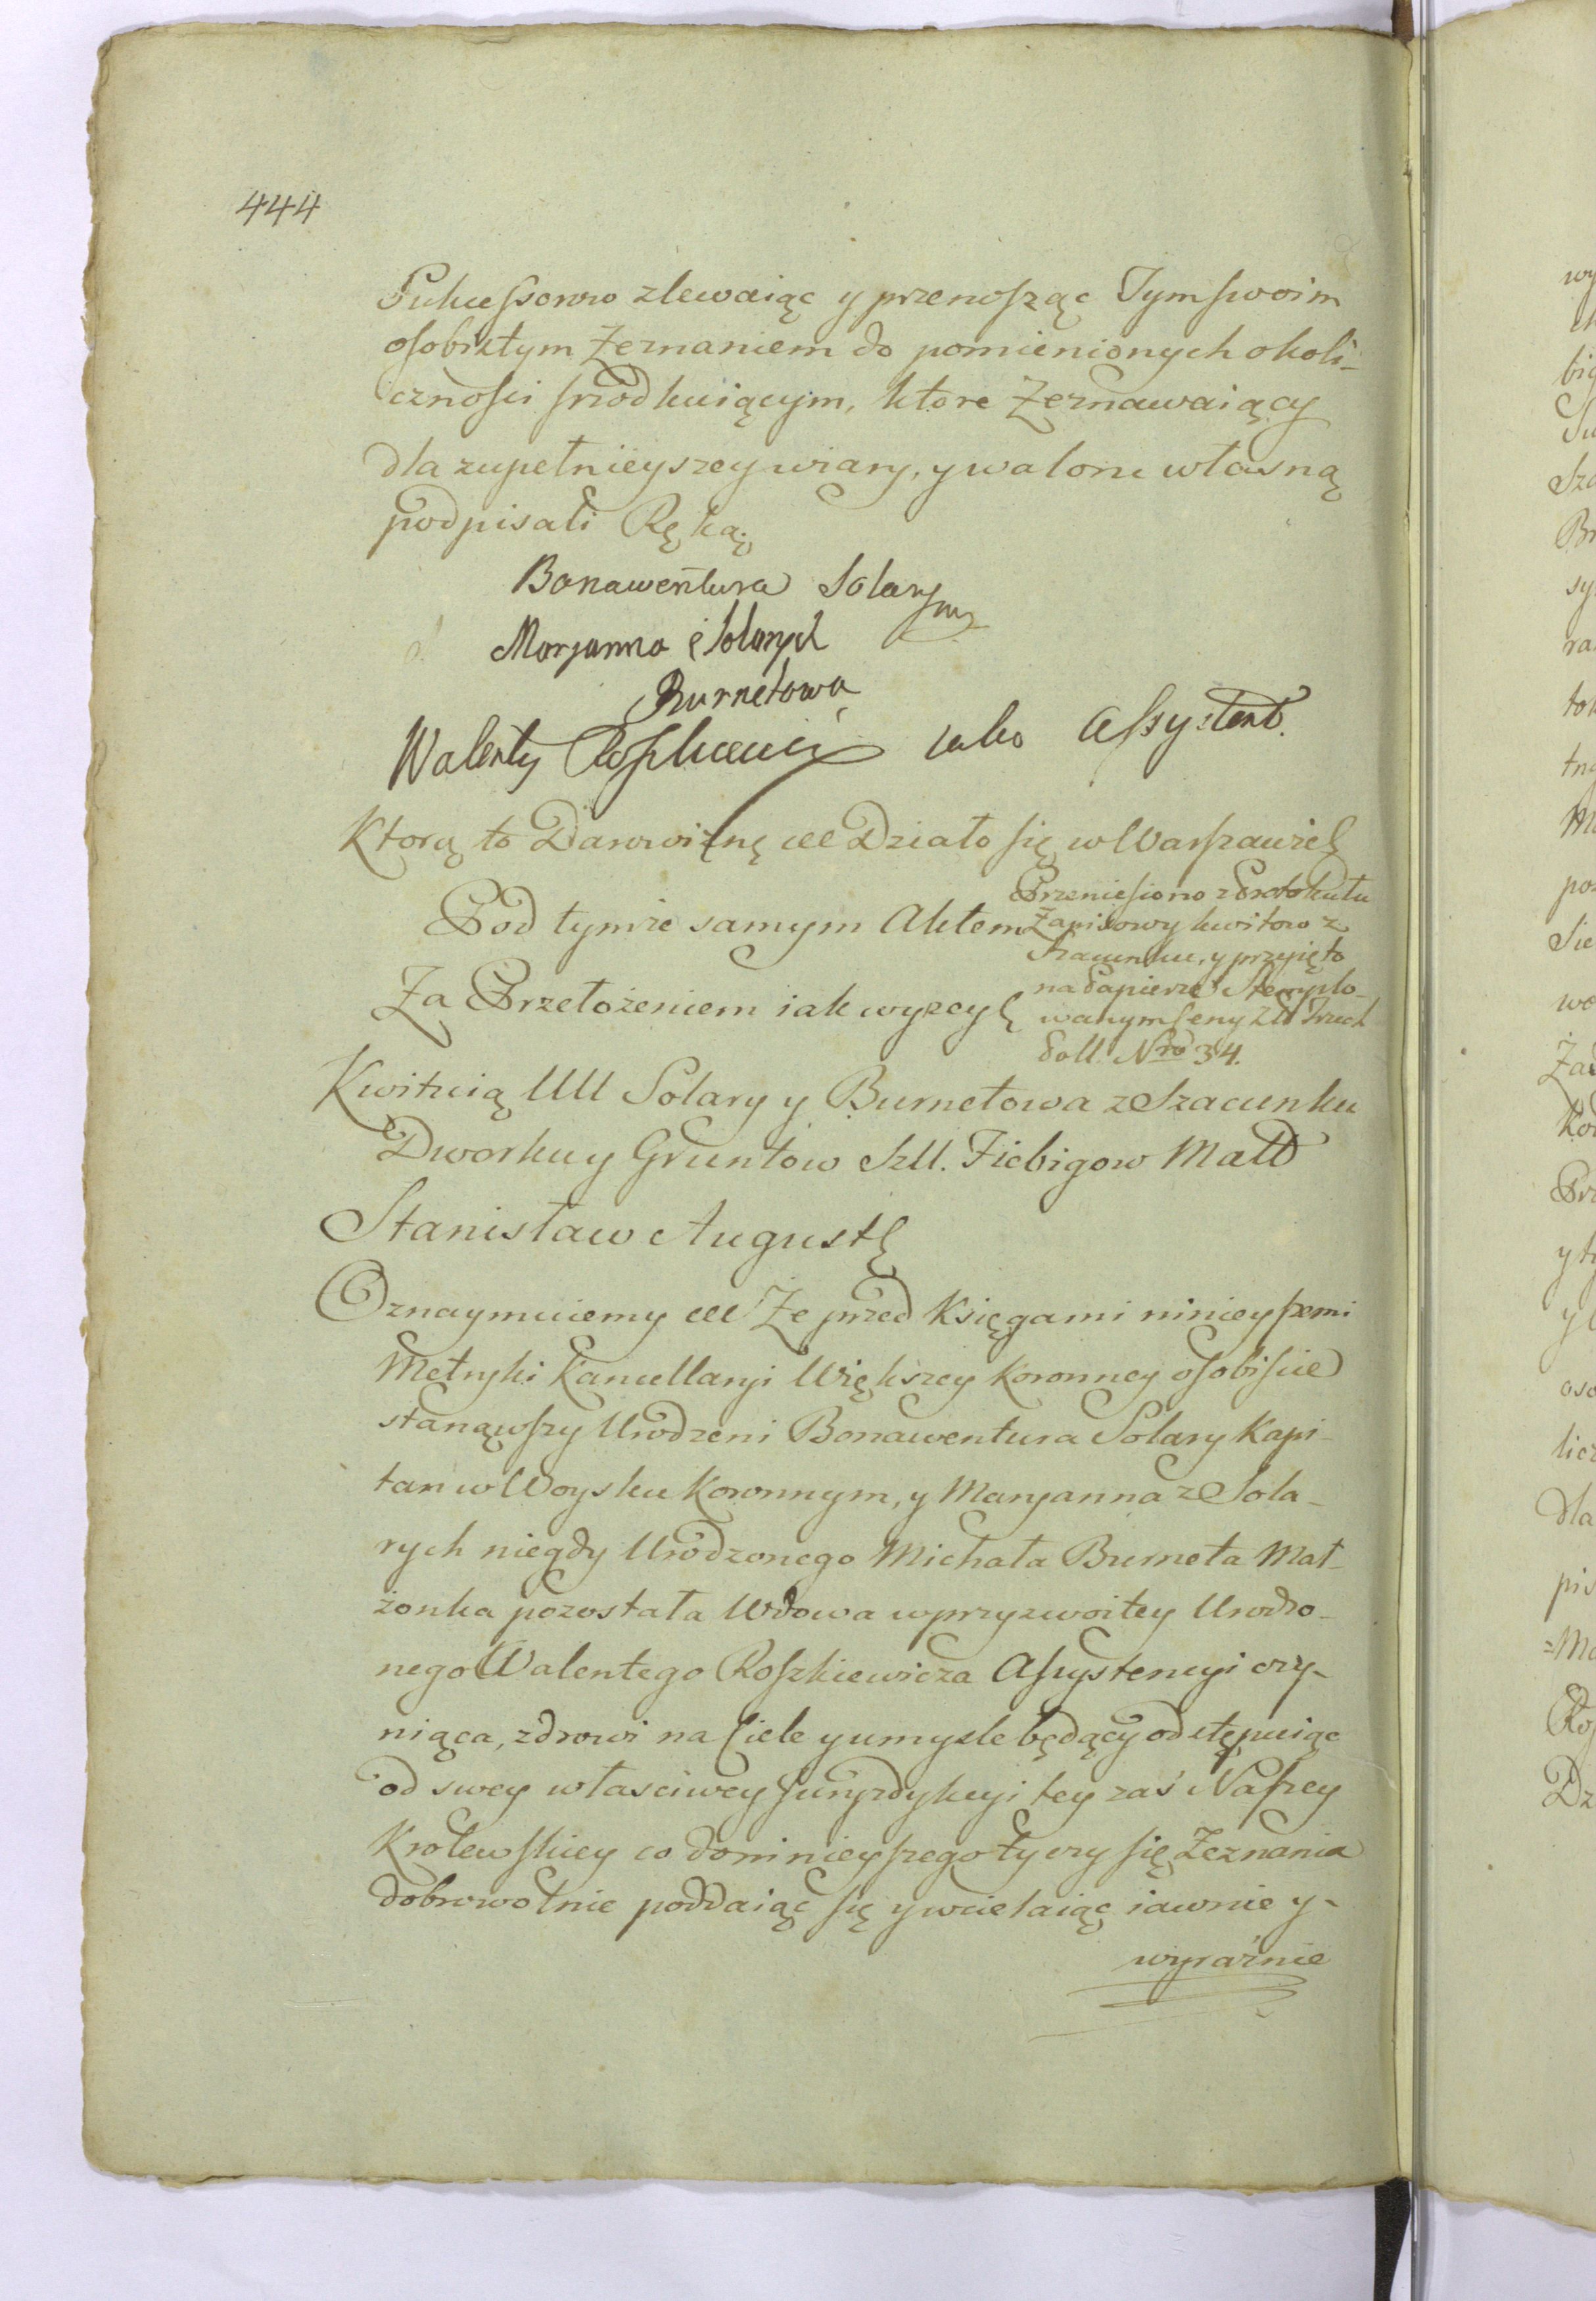 444
Sukcessorow zlewaiąc y przenosząc Tym swoim
osobistym Zeznaniem do pomienionych okoli-
czności szrodkuiącym, ktore Zeznawaiący
dla zupełnieyszey wiary, y waloru własną
podpisali Ręką.
Bonawentura Solary
Maryanna z Solarych
Burnetowa
Walenty Roszkiewicz iako Assystent.
Ktorą to Darowiznę &c Działo się w Warszawie
Pod tymże samym Aktem
Za Przełożeniem iak wyzey
Przeniesiono z Protokułu
Zapisowy kwitow z
Szacunku, y przyięto
na Papierze Stemplo-
wanym Ceny Zll Trzech
foll. Nro 34.
Kwituią UU Solary y Burnetowa z Szacunku
Dworku y Gruntow Szll. Fiebigow Małł
Stanisław August
Oznaymuiemy &c Ze przed Księgami ninieyszemi
Metryki Kancellaryi Większey Koronney osobiscie
stanąwszy Urodzeni Bonawentura Solary Kapi-
tan w Woysku Koronnym, y Maryanna z Sola-
rych niegdy Urodzonego Michała Burneta Mał-
żonka pozostała Wdowa w przyzwoitey Urodzo-
nego Walentego Roszkiewicza Assystencyi czy-
niąca, zdrowi na Ciele y umysle będący odstępuiąc
od swey własciwey Juryzdykcyi tey zaś Naszey
Krolewskiey co do ninieyszego tyczy się Zeznania
dobrowolnie poddaiąc się y wcielaiąc iawnie y-
wyraźnie